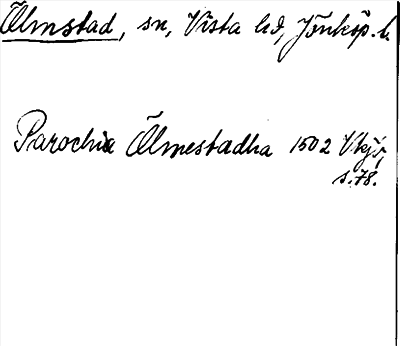 Ölmstad, sn, Vista hd, Jönköp. l.
Parochia Ölmestadha 1502
s. 78.